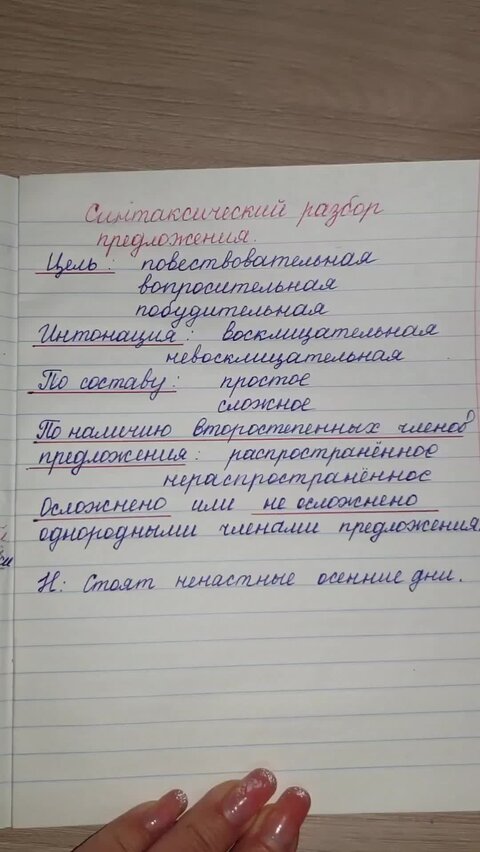 Синтаксический разбор
предложения.
Цель: повествовательная
вопросительная
побудительная
Интонация: восклицательная
невосклицательная
По составу: простое
сложное
По наличию второстепенных членов
предложения: распространённое
нераспространённое
Осложнено или не осложнено
однородными членами предложения
Н: Стоят ненастные осенние дни.